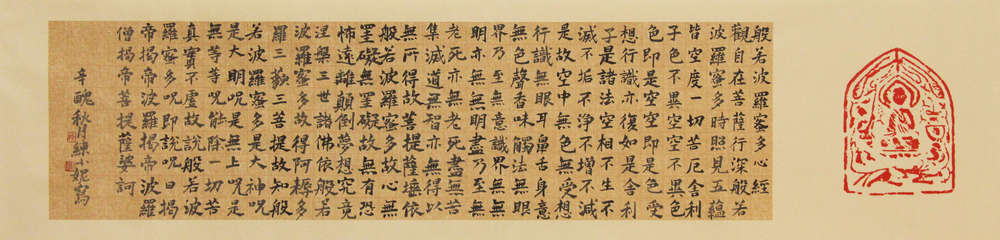 般若波羅蜜多心經
觀自在菩薩行深般若
波羅蜜多時照見五蘊
皆空度一切苦厄舍利
子色不異空空不異色
色即是空空即是色受
想行識亦復如是舍利
子是諸法空相不生不
滅不垢不淨不增不減
是故空中無色無受想
行識無眼耳鼻舌身意
無色聲香味觸法無眼
界乃至無意識界無無
明亦無無明盡乃至無
老死亦無老死盡無苦
集滅道無智亦無得以
無所得故菩提薩埵依
般若波羅蜜多故心無
罣礙無罣礙故無有恐
怖遠離顛倒夢想究竟
涅槃三世諸佛依般若
波羅蜜多故得阿耨多
羅三藐三菩提故知般
若波羅蜜多是大神呪
是大明呪是無上呪是
無等等呪能除一切苦
真實不虛故說般若波
羅蜜多呪即說呪曰揭
帝揭帝波羅揭帝波羅
僧揭帝菩提薩婆訶
辛醜秋月練小妮寫